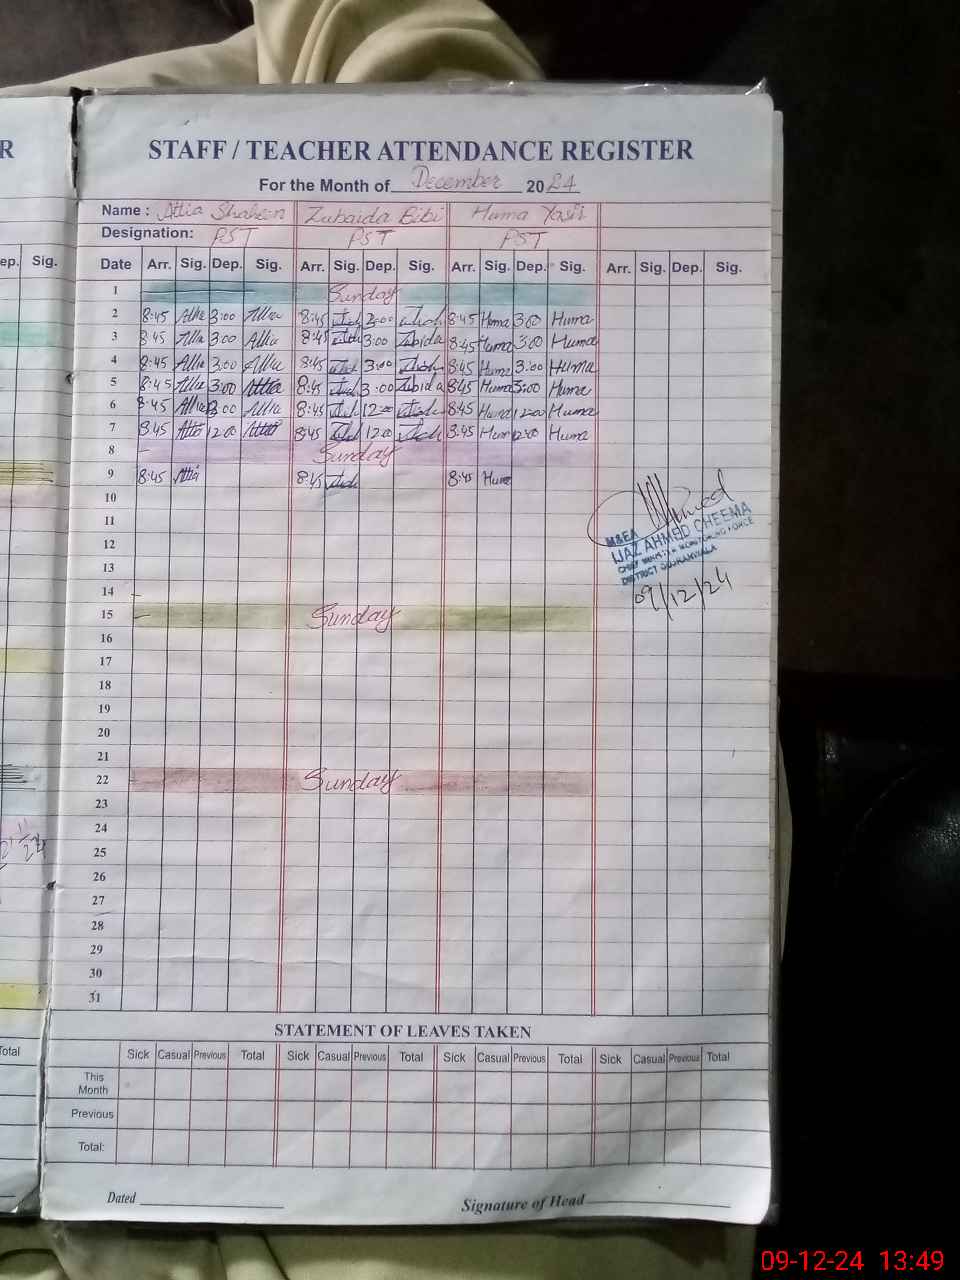 R
STAFF / TEACHER ATTENDANCE REGISTER
For the Month of December 2024
Name : Attia Shaheen Zubaida Bibi Huma Yasir
Designation: PST PST PST
ep. Sig. Date Arr. Sig. Dep. Sig. Arr. Sig. Dep. Sig. Arr. Sig. Dep. Sig. Arr. Sig. Dep. Sig.
1 Sunday
2 8:45 Attia 3:00 Attia 8:45 8:45 Huma 3:00 Huma
3 8:45 Attia 3:00 Attia 8:45 3:00 Zubida 8:45 Huma 3:00 Huma
4 8:45 Attia 3:00 Attia 8:45 3:00 8:45 Huma 3:00 Huma
5 8:45 Attia 3:00 Attia 8:45 3:00 Zubida 8:45 Huma 3:00 Huma
6 8:45 Attia Attia 8:45 12:00 8:45 Huma 12:00 Huma
7 8:45 Attia 12:00 Attia 8:45 12:00 8:45 Huma 12:00 Huma
8 Sunday
9 8:45 Attia 8:45 8:45 Huma
10
11
12
13
14
15 Sunday
16
17
18
19
20
21
22 Sunday
23
24
25
26
27
28
29
30
31
M&EA
IJAZ AHMED CHEEMA
CHIEF MINISTER MONITORING FORCE
DISTRICT GUJRANWALA
09/12/24
STATEMENT OF LEAVES TAKEN
Total Sick Casual Previous Total Sick Casual Previous Total Sick Casual Previous Total Sick Casual Previous Total
This Month
Previous
Total:
Dated Signature of Head
09-12-24 13:49